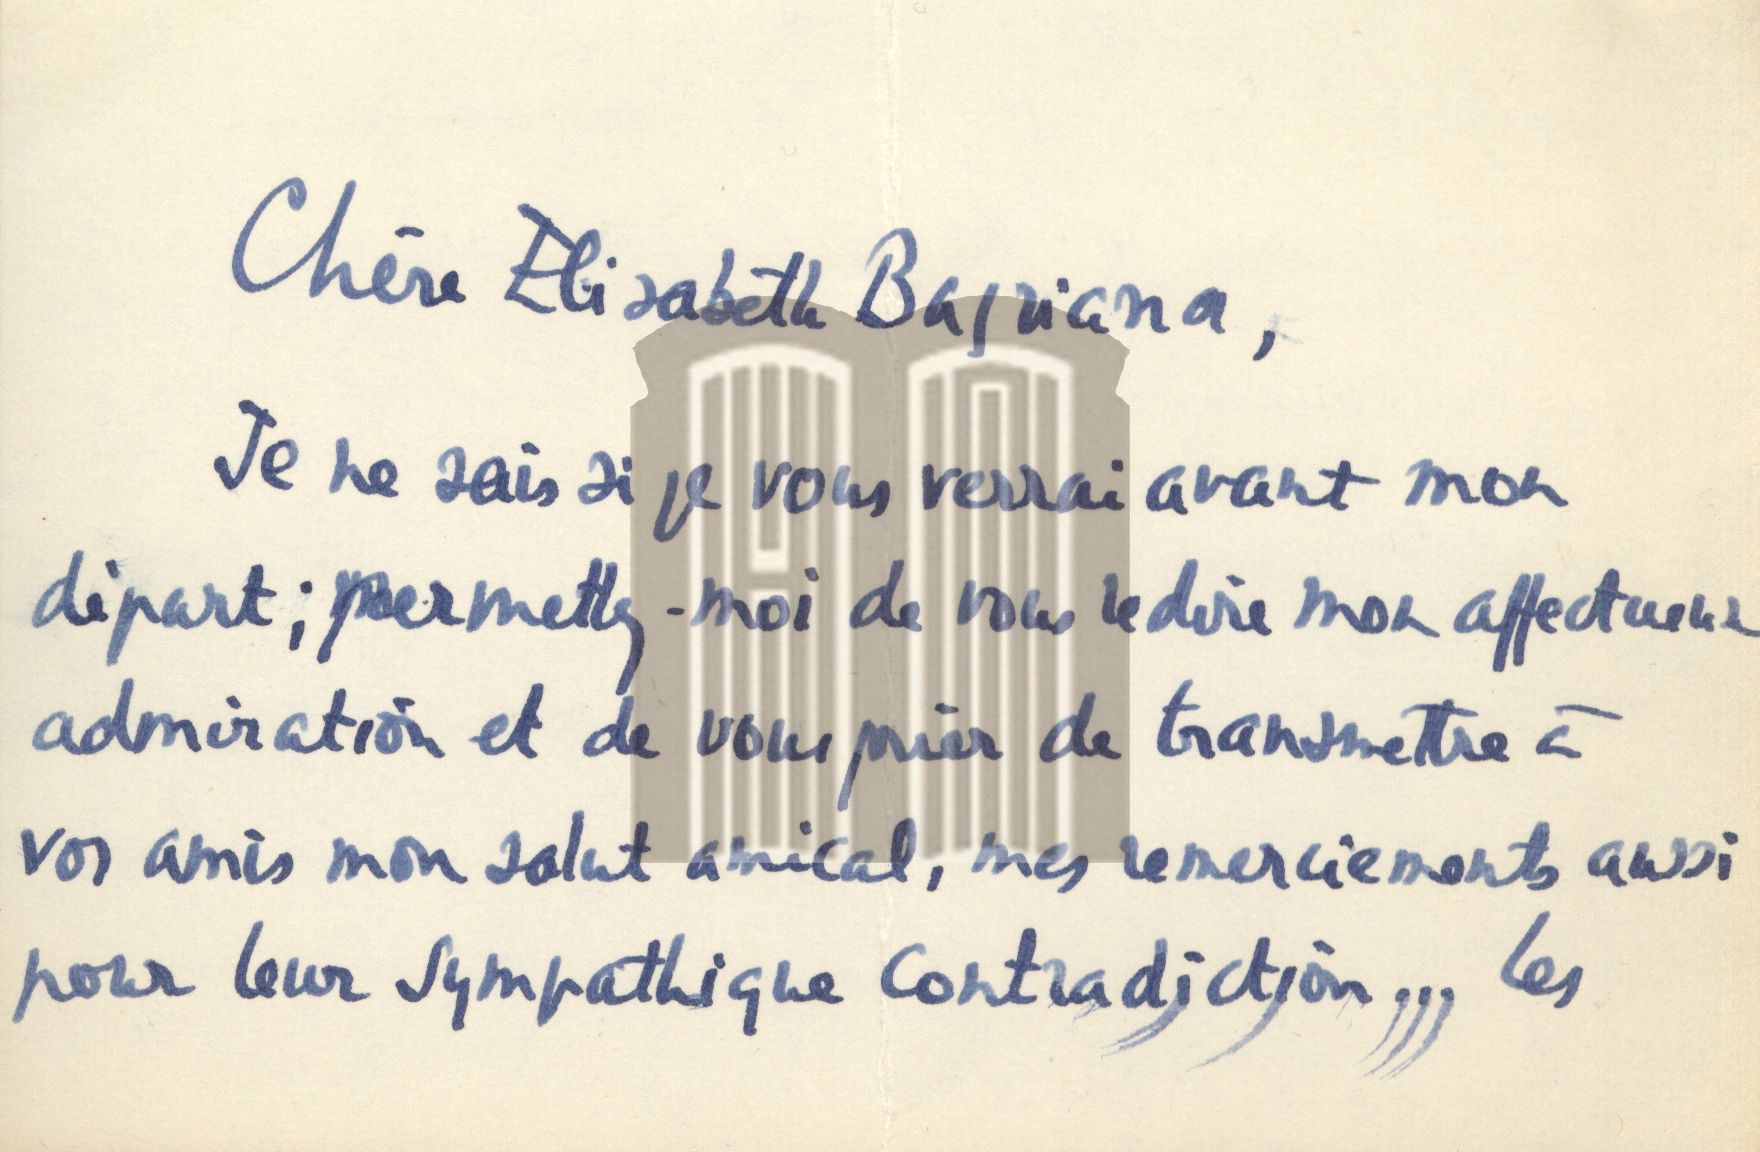 Chère Elisabeth Bagriana,
Je ne sais si je vous verrai avant mon
départ; permettez-moi de vous redire mon affectueuse
admiration et de vous prier de transmettre à
vos amis mon salut amical, mes remerciements aussi
pour leur sympathique contradiction... Les